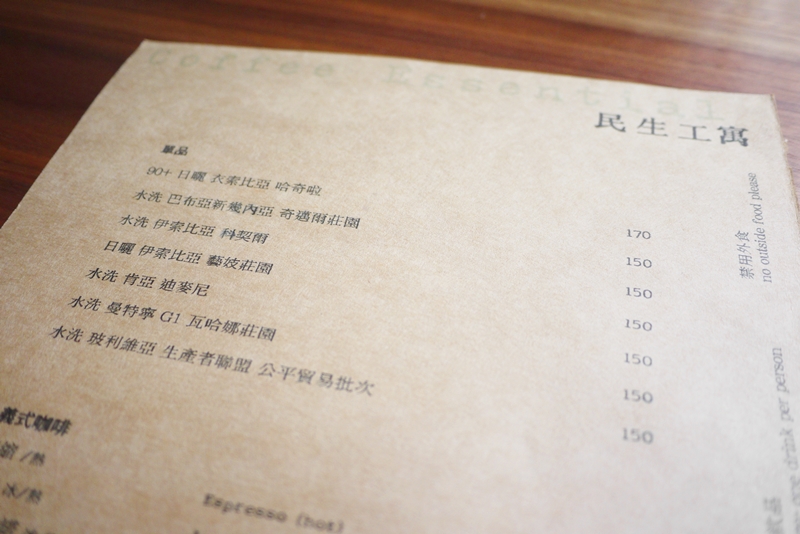 Coffee Essential
民生工寓
單品
90+ 日曬 衣索比亞 哈奇啦 170
水洗 巴布亞新幾內亞 奇邁爾莊園 150
水洗 伊索比亞 科契爾 150
日曬 伊索比亞 藝妓莊園 150
水洗 肯亞 迪麥尼 150
水洗 曼特寧 G1 瓦哈娜莊園 150
水洗 玻利維亞 生產者聯盟 公平貿易批次 150
義式咖啡
/熱
冰/熱
Espresso (hot)
禁用外食
no outside food please
飲品
one drink per person